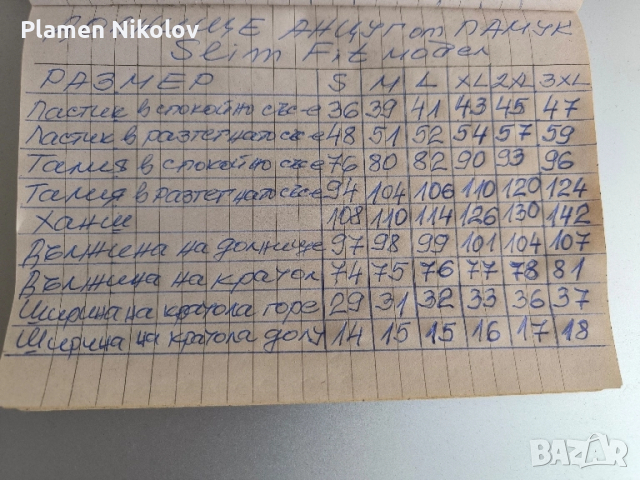 Plamen Nikolov
ДОЛНИЩЕ АНЦУГ от ПАМУК
Slim Fit модел
РАЗМЕР S M L XL 2XL 3XL
Ластик в спокойно със-е 36 39 41 43 45 47
Ластик в разтегнато със-е 48 51 52 54 57 59
Талия в спокойно със-е 76 80 82 90 93 96
Талия в разтегнато със-е 94 104 106 110 120 124
Ханш 108 110 114 126 130 142
Дължена на долнище 97 98 99 101 104 107
Дължина на крачол 74 75 76 77 78 81
Ширина на крачола горе 29 31 32 33 36 37
Ширина на крачола долу 14 15 15 16 17 18
BAZAR